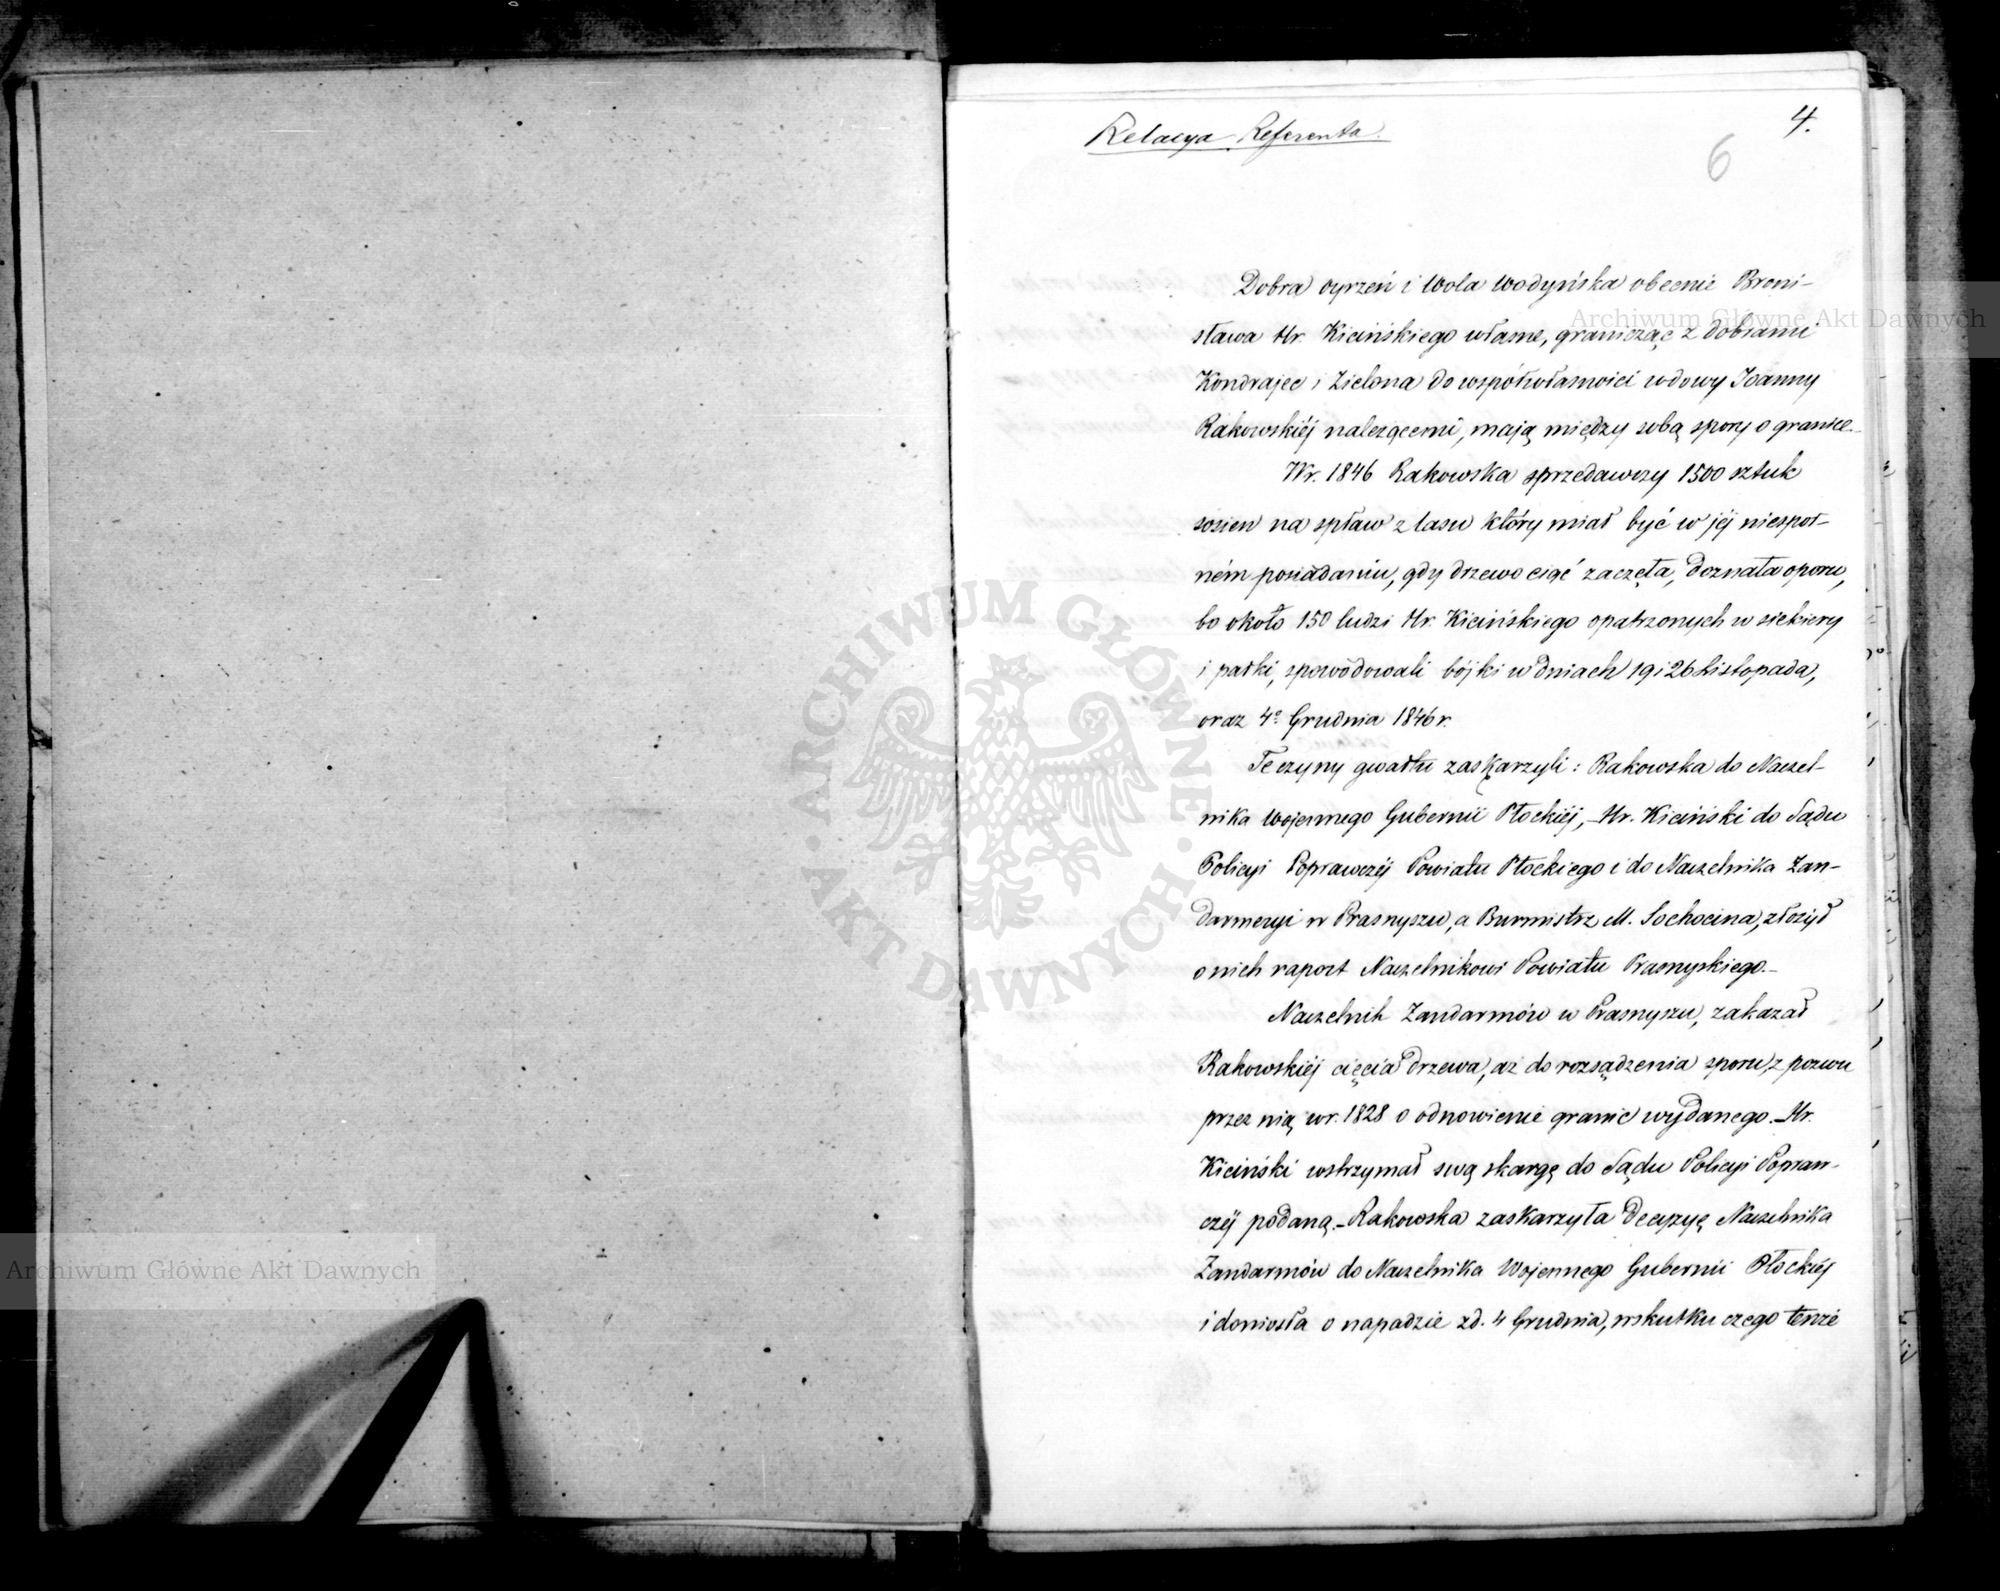 Relacya Referenta.
4.
6
Dobra Gyrzeń i Wola Wodyńska obecnie Broni-
sława Hr. Kicińskiego własne, granicząc z dobrami
Kondrajec i Zielona do współwłasności wdowy Joanny
Rakowskiéj należącemi, mają między sobą spory o granice.
W r. 1846 Rakowska sprzedawszy 1500 sztuk
sosien na spław z lasu który miał być w jéj niespor-
ném posiadaniu, gdy drzewo ciąć zaczęła, doznała oporu,
bo około 150 ludzi Hr. Kicińskiego opatrzonych w siekiery
i pałki, spowodowali bójki w dniach 19 i 26 Listopada,
oraz 4º Grudnia 1846 r.
Te czyny gwałtu zaskarzyli: Rakowska do Naczel-
nika Wojennego Gubernii Płockiéj, Hr. Kiciński do Sądu
Policyi Poprawczéj Powiatu Płockiego i do Naczelnika Żan-
darmeryi w Prasnyszu, a Burmistrz M. Sochocina, złożył
o nich raport Naczelnikowi Powiatu Prasnyskiego.-
Naczelnik Żandarmów w Prasnyszu, zakazał
Rakowskiéj cięcia drzewa, aż do rozsądzenia sporu, z pozwu
przez nią w r. 1828 o odnowienie granic wydanego.- Hr.
Kiciński wstrzymał swą skargę do Sądu Policyi Popraw-
czéj podaną.- Rakowska zaskarzyła Decyzyę Naczelnika
Żandarmów do Naczelnika Wojennego Gubernii Płockiéj
i doniosła o napadzie z d. 4 Grudnia, wskutku czego tenże
Archiwum Główne Akt Dawnych
ARCHIWUM GŁÓWNE AKT DAWNYCH
Archiwum Główne Akt Dawnych